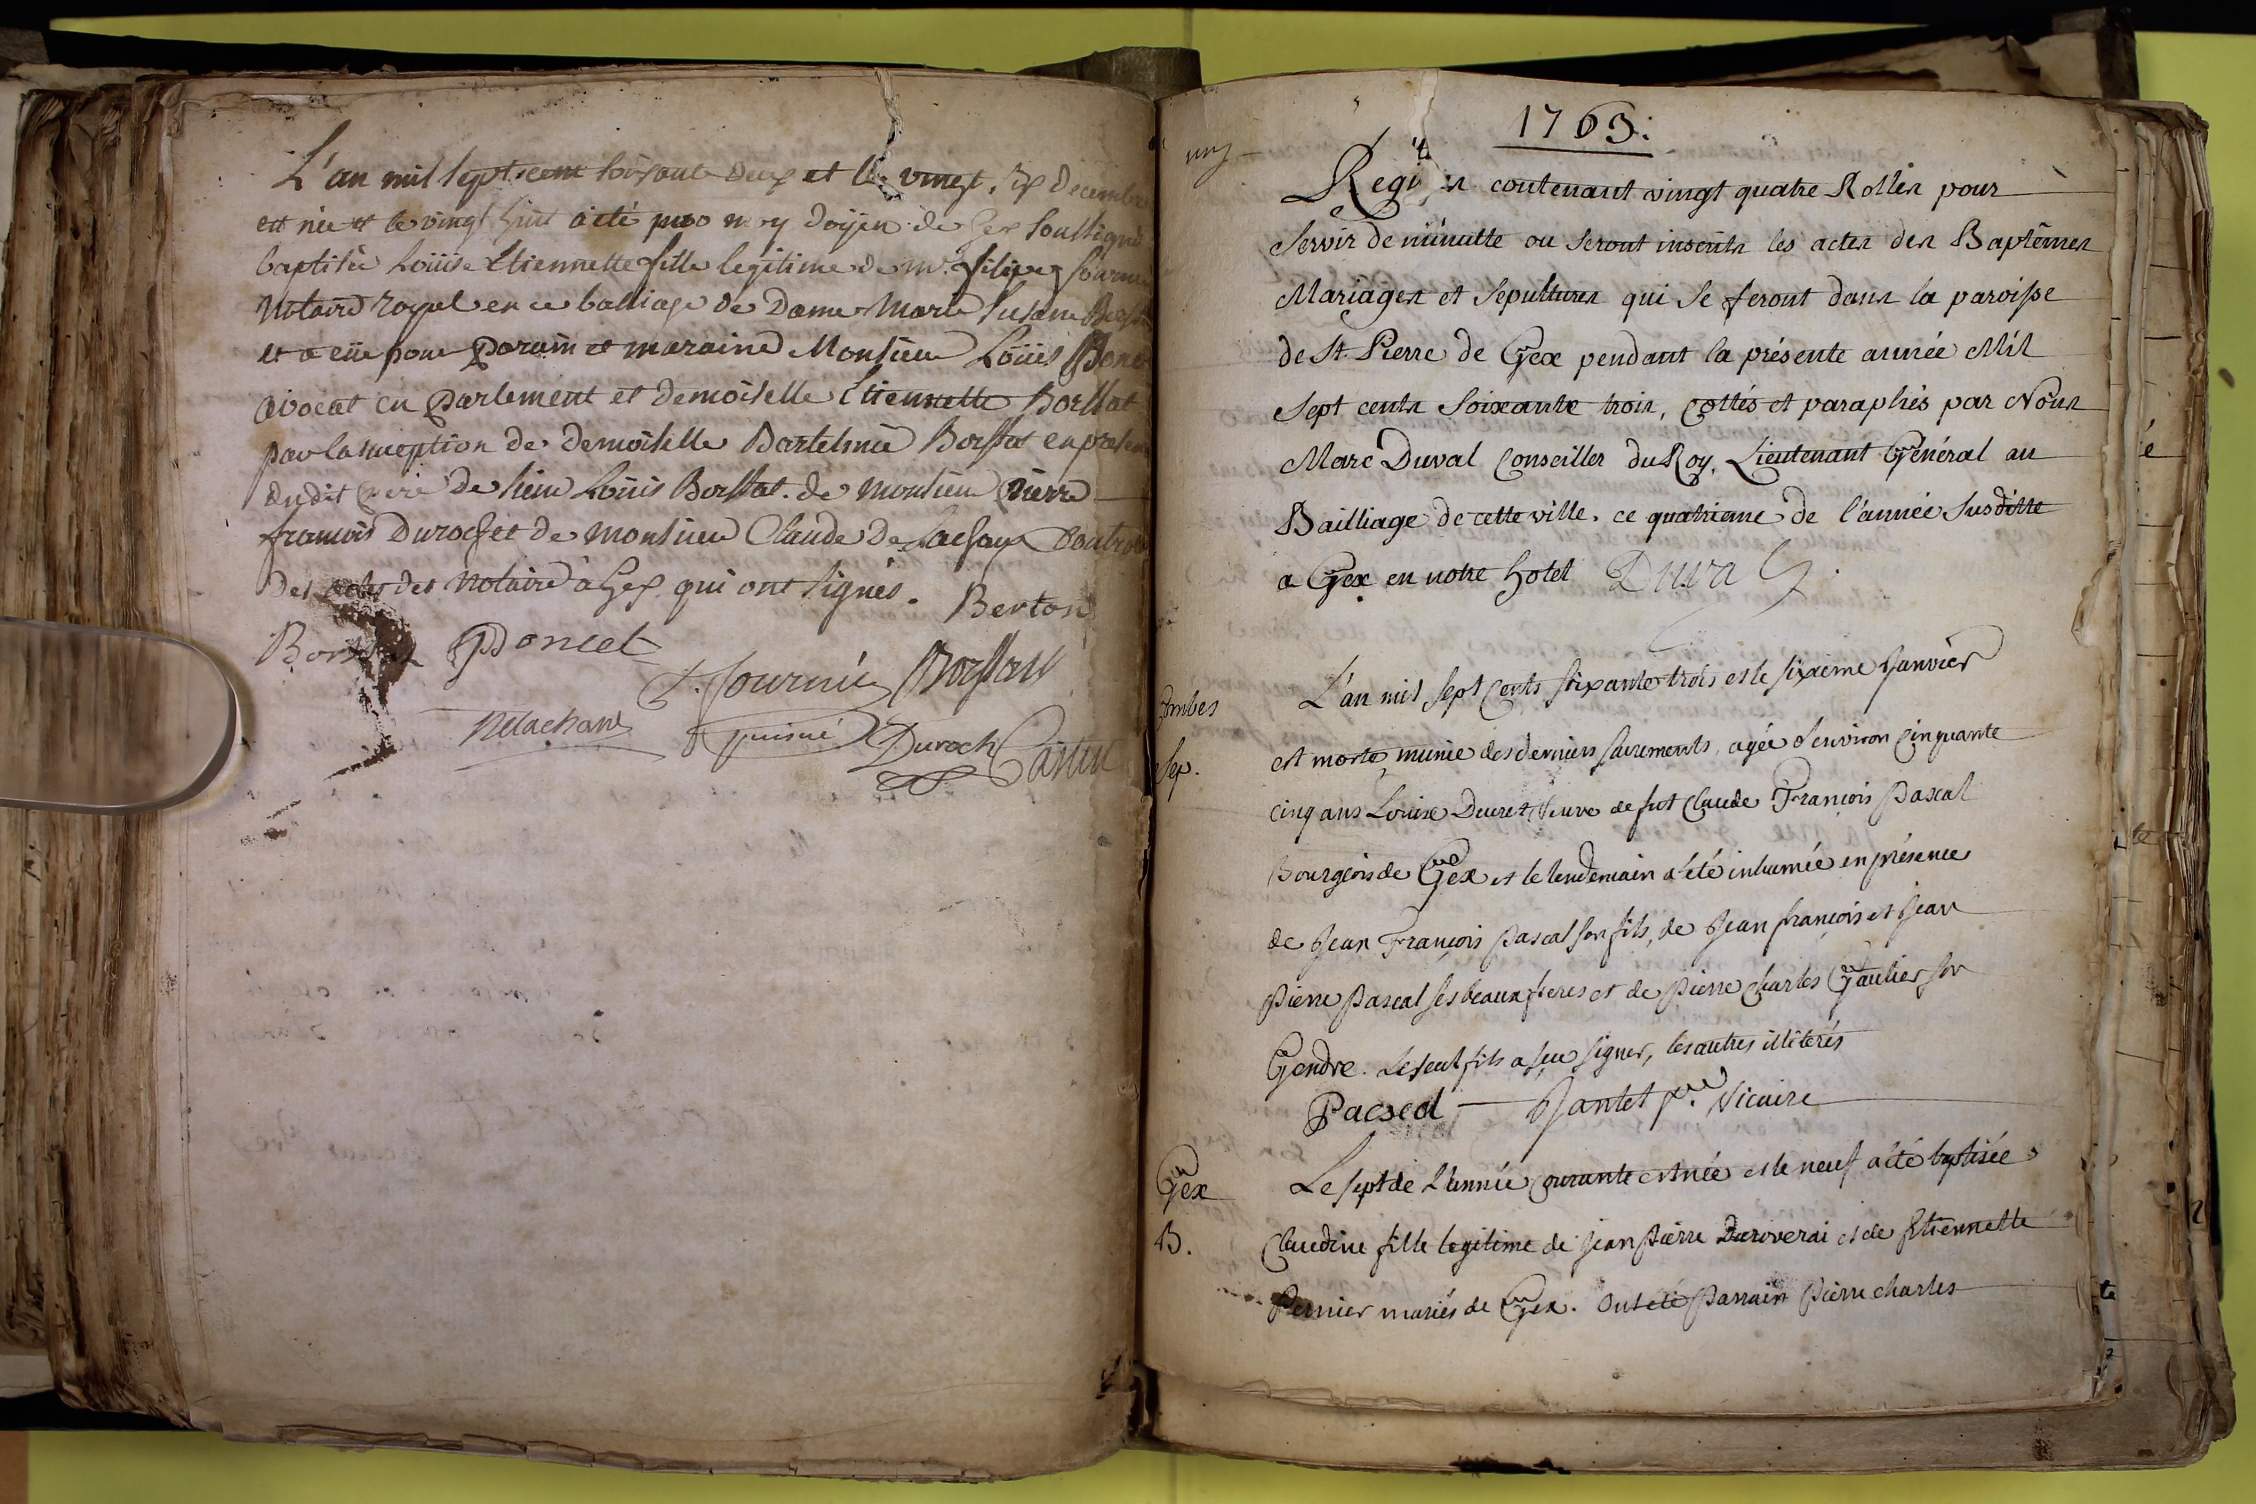 L'an mil sept cent soisante deux et le vingt six decembre
est née et le vingt huit a été par moy doÿen de Gex soussigné
baptisée Loüise Etiennette fille legitime de mr. filipe fournié
Notaire royal en ce balliage de Dame Marie Susane
et a eüe pour Parain et maraine Monsieur Loüis Ponc
avocat en Parlement et demoiselle Etiennette Borssat
par la suception de demoiselle Bartelmie Borssat en presen
dudit pere de sieur Loüis Borssat de Monsieur Pierre
francois Duroch et de Monsieur Claude de Lachaux Controle
des actes des Notaire à Gex qui ont signés.
Berton
Borssat Poncet
f. fournié Borssat
Delachaux Duroch
1763.
Regi r contenant vingt quatre Rolles pour
Servir de minutte ou seront inscrits les actes des Baptêmes
Mariages et Sepultures qui se feront dans la paroisse
de St. Pierre de Gex pendant la présente année Mil
Sept cents Soixante trois, cottés et paraphés par Nous
Marc Duval Conseiller du Roy, Lieutenant Général au
Bailliage de cette ville. ce quatrieme de l'année susditte
a Gex en notre hotel Duval
L'an mil sept cents soixante trois et le sixieme Janvier
est morte munie des derniers sacrements, agée d'environ cinquante
Sep.
cinq ans Louise Ducret veuve de fut Claude François Pascal
Bourgeois de Gex et le lendemain a été inhumée en présence
de Jean François Pascal son fils, de Jean françois et Jean
Pierre Pascal ses beaux freres et de Pierre Charles Gautier son
Gendre. Le seul fils a sçu signer, les autres illitérés
Pacscal Jantet ptre. Vicaire
Gex
Le sept de l'année courante est née et le neuf a été baptisée
B.
Claudine fille legitime de Jean Pierre Duroverai et de Etiennette
Pernier mariés de Gex. Ont été Parrain Pierre Charles